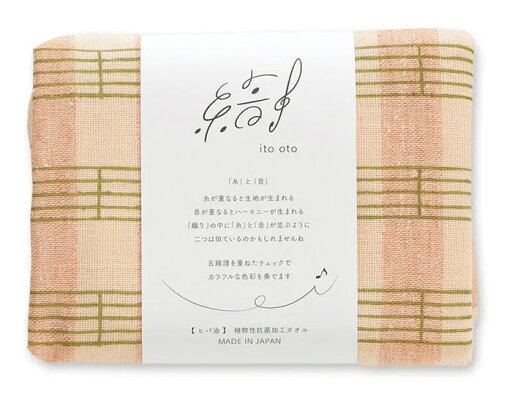 ito oto
「糸」と「音」
糸が重なると生地が生まれる
音が重なるとハーモニーが生まれる
「織り」の中に「糸」と「音」が並ぶように
二つは似ているのかもしれませんね
五線譜を重ねたチェックで
カラフルな色彩を奏でます
【 ヒバ油 】 植物性抗菌加工タオル
MADE IN JAPAN